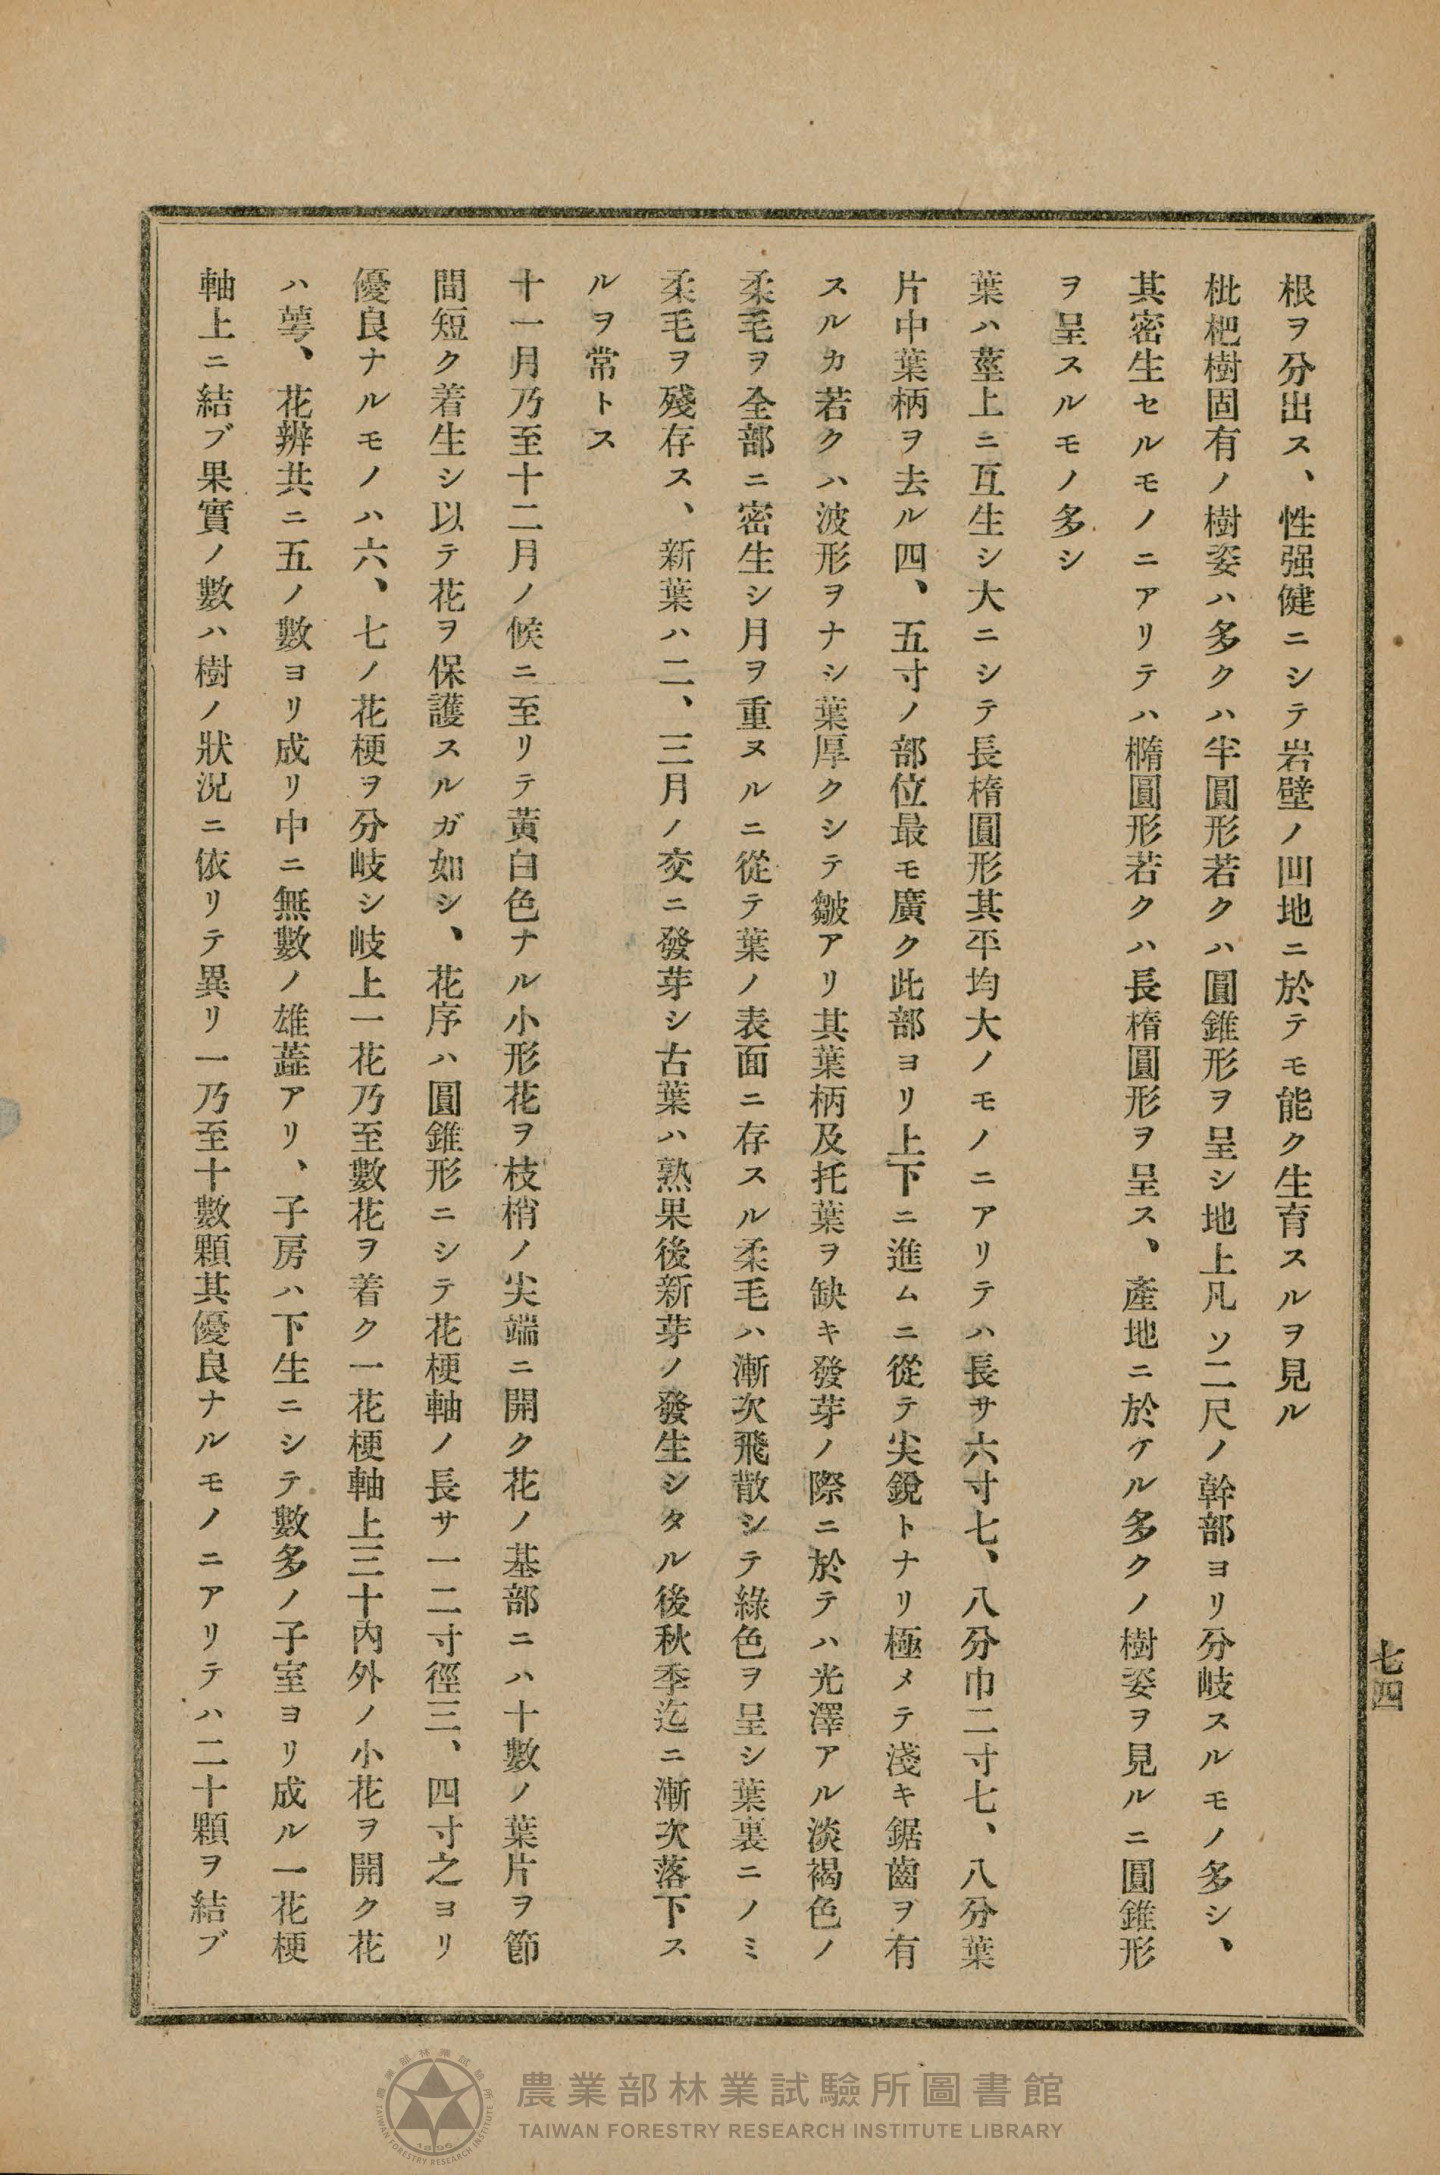 根ヲ分出ス、性强健ニシテ岩壁ノ凹地ニ於テモ能ク生育スルヲ見ル
枇杷樹固有ノ樹姿ハ多クハ半圓形若クハ圓錐形ヲ呈シ地上凡ソ二尺ノ幹部ヨリ分岐スルモノ多シ、
其密生セルモノニアリテハ橢圓形若クハ長楕圓形ヲ呈ス、產地ニ於ケル多クノ樹姿ヲ見ルニ圓錐形
ヲ呈スルモノ多シ
葉ハ莖上ニ互生シ大ニシテ長楕圓形其平均大ノモノニアリテハ長サ六寸七、八分巾二寸七、八分葉
片中葉柄ヲ去ル四、五寸ノ部位最モ廣ク此部ヨリ上下ニ進ムニ從テ尖銳トナリ極メテ淺キ鋸齒ヲ有
スルカ若クハ波形ヲナシ葉厚クシテ皺アリ其葉柄及托葉ヲ缺キ發芽ノ際ニ於テハ光澤アル淡褐色ノ
柔毛ヲ全部ニ密生シ月ヲ重ヌルニ從テ葉ノ表面ニ存スル柔毛ハ漸次飛散シテ綠色ヲ呈シ葉裏ニノミ
柔毛ヲ殘存ス、新葉ハ二、三月ノ交ニ發芽シ古葉ハ熟果後新芽ノ發生シタル後秋季迄ニ漸次落下ス
ルヲ常トス
十一月乃至十二月ノ候ニ至リテ黃白色ナル小形花ヲ枝梢ノ尖端ニ開ク花ノ基部ニハ十數ノ葉片ヲ節
間短ク着生シ以テ花ヲ保護スルガ如シ、花序ハ圓錐形ニシテ花梗軸ノ長サ一二寸徑三、四寸之ヨリ
優良ナルモノハ六、七ノ花梗ヲ分岐シ岐上一花乃至數花ヲ着ク一花梗軸上三十內外ノ小花ヲ開ク花
ハ萼、花辨共ニ五ノ數ヨリ成リ中ニ無數ノ雄蕋アリ、子房ハ下生ニシテ數多ノ子室ヨリ成ル一花梗
軸上ニ結ブ果實ノ數ハ樹ノ狀況ニ依リテ異リ一乃至十數顆其優良ナルモノニアリテハ二十顆ヲ結ブ
七四
農業部林業試驗所圖書館
TAIWAN FORESTRY RESEARCH INSTITUTE LIBRARY
農業部林業試驗所
TAIWAN FORESTRY RESEARCH INSTITUTE
1896